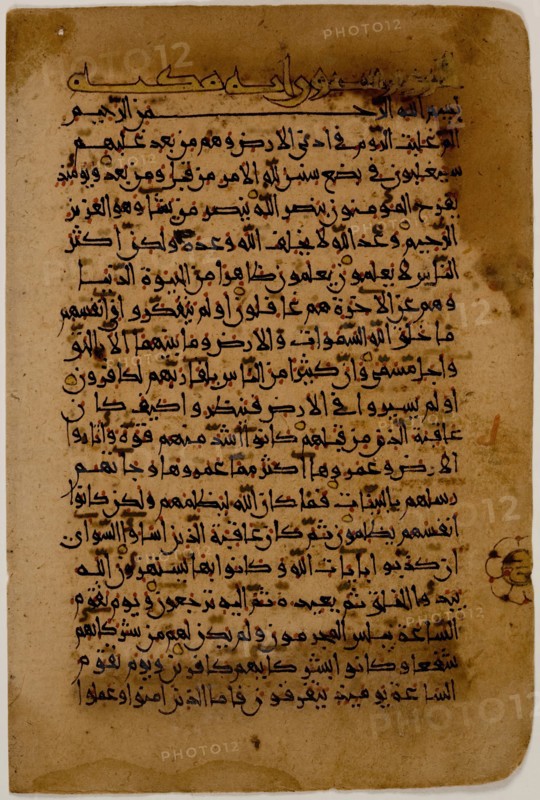 اية مكية
بسم الله الرحمن الرحيم
الم غلبت الروم في ادنى الارض وهم من بعد غلبهم
سيغلبون في بضع سنين لله الامر من قبل ومن بعد ويومئذ
يفرح المومنون بنصر الله ينصر من يشا وهو العزيز
الرحيم وعد الله لا يخلف الله وعده ولكن اكثر
الناس لا يعلمون يعلمون ظاهرا من الحيوة الدنيا
وهم عن الاخرة هم غافلون اولم يتفكروا في انفسهم
ما خلق الله السموات والارض وما بينهما الا بالحق
واجل مسمى وان كثيرا من الناس بلقاي ربهم لكافرون
اولم يسيروا في الارض فينظروا كيف كان
عاقبة الذين من قبلهم كانوا اشد منهم قوة واثاروا
الارض وعمروها اكثر مما عمروها وجاتهم
رسلهم بالبينات فما كان الله ليظلمهم ولكن كانوا
انفسهم يظلمون ثم كان عاقبة الذين اساوا السواى
ان كذبوا بايات الله وكانوا بها يستهزون الله
يبدوا الخلق ثم يعيده ثم اليه ترجعون ويوم تقوم
الساعة يبلس المجرمون ولم يكن لهم من شركايهم
شفعاو وكانوا بشركايهم كافرين ويوم تقوم
الساعة يوميذ يتفرقون فاما الذين امنوا وعملوا